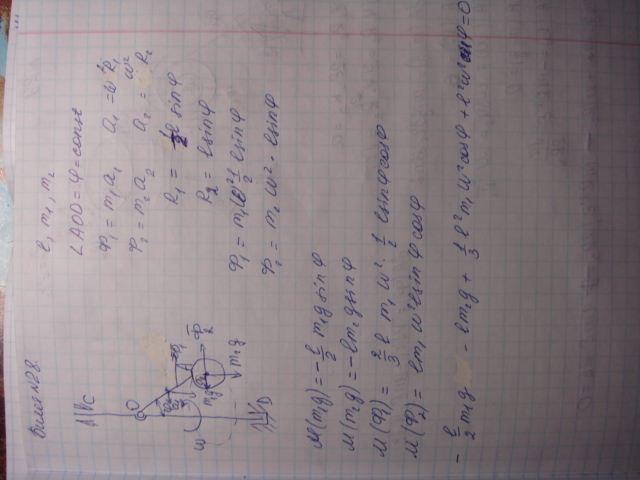 Билет №28.
l, m₁, m₂
∠AOD = φ = const
Φ₁ = m₁a₁ a₁ = ω²R₁
Φ₂ = m₂a₂ a₂ = ω²R₂
R₁ = ½ l sinφ
R₂ = l sinφ
Φ₁ = m₁ω² ½ l sinφ
Φ₂ = m₂ ω² · l sinφ
C
O
A
Φ₂
m₂g
ω
D
M(m₁g) = -l/2 m₁g sinφ
M(m₂g) = -l m₂g sinφ
M(Φ₁) = 2/3 l m₁ ω² · ½ l sinφ cosφ
M(Φ₂) = l m₁ ω² l sinφ cosφ
- l/2 m₁g - l m₂g + 1/3 l² m₁ ω² cosφ + l² ω² cosφ = 0